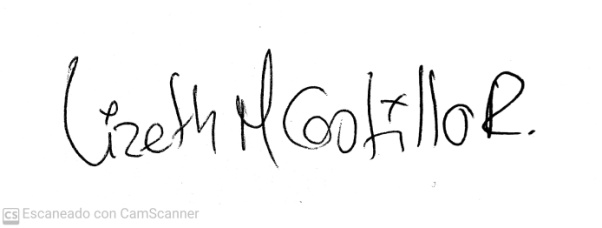 Lizeth M Castillo R.
CS Escaneado con CamScanner